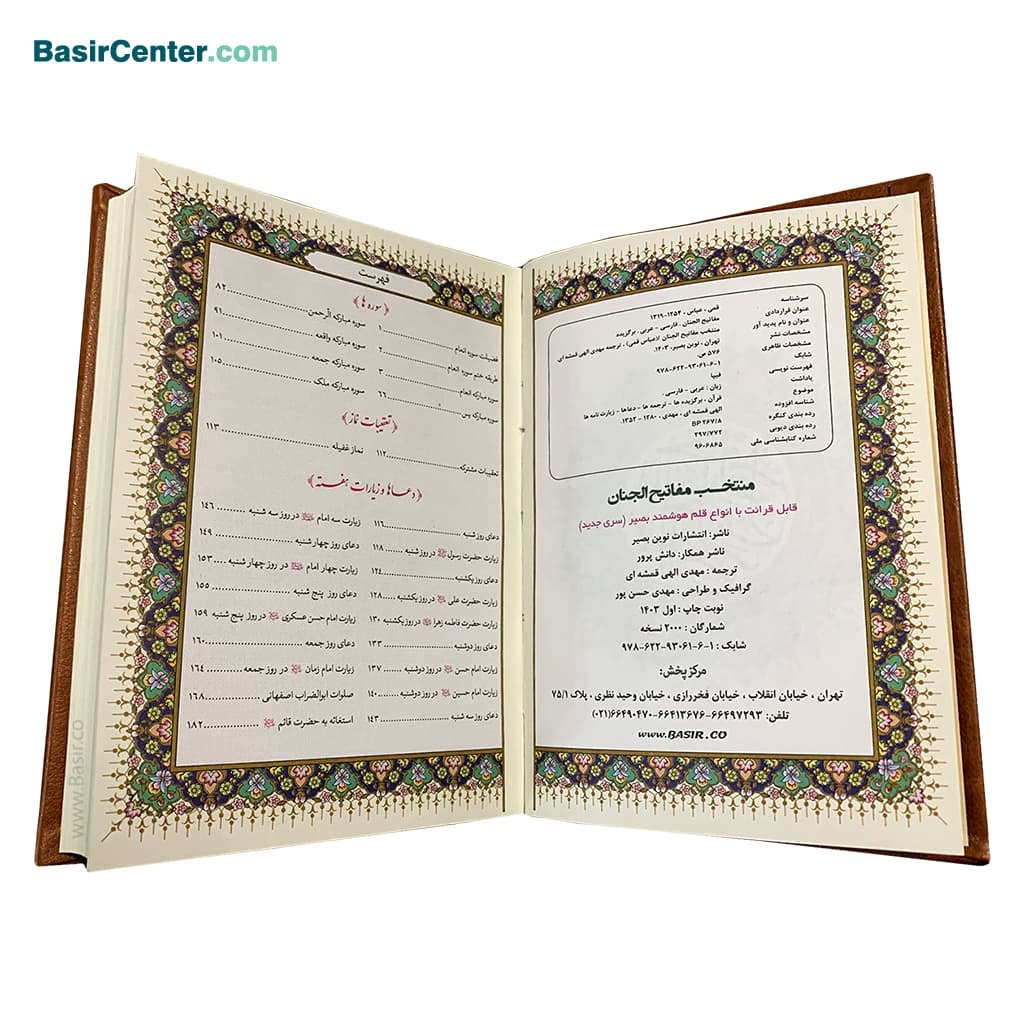 BasirCenter.com
سرشناسه قمی ، عباس ، ۱۲۵۴-۱۳۱۹
عنوان قراردادی مفاتیح الجنان . فارسی - عربی . برگزیده
عنوان و نام پدید آور منتخب مفاتیح الجنان /(عباس قمی) ، ترجمه مهدی الهی قمشه ای
مشخصات نشر تهران ، نوین بصیر، ۱۴۰۳.
مشخصات ظاهری ۵۷۶ ص
شابک ۹۷۸-۶۲۲-۹۳۰۶۱-۶-۱
فهرست نویسی فیپا
یاداشت زبان : عربی - فارسی .
موضوع قرآن - برگزیده ها - ترجمه ها - دعاها - زیارت نامه ها
شناسه افزوده الهی قمشه ای ، مهدی ، ۱۲۸۰ - ۱۳۵۲.
رده بندی کنگره BP ۲۶۷/۸
رده بندی دیویی ۲۹۷/۷۷۲
شماره کتابشناسی ملی ۹۶۰۶۸۶۵
منتخب مفاتیح الجنان
قابل قرائت با انواع قلم هوشمند بصیر (سری جدید)
ناشر: انتشارات نوین بصیر
ناشر همکار: دانش پرور
ترجمه : مهدی الهی قمشه ای
گرافیک و طراحی : مهدی حسن پور
نوبت چاپ : اول ۱۴۰۳
شمارگان : ۲۰۰۰ نسخه
شابک : ۱-۶-۹۳۰۶۱-۶۲۲-۹۷۸
مرکز پخش:
تهران ، خیابان انقلاب ، خیابان فخررازی ، خیابان وحید نظری ، پلاک ۷۵/۱
تلفن: ۶۶۴۹۷۲۹۳-۶۶۴۱۳۶۷۶-۶۶۴۹۰۴۷۰(۰۲۱)
www.BASIR.CO
فهرست
﴿ سوره ها ﴾
فضیلت سوره انعام ۱
طریقه ختم سوره انعام ۲
سوره مبارکه انعام ۳
سوره مبارکه یس ۶۶
سوره مبارکه الرحمن ۸۲
سوره مبارکه واقعه ۹۱
سوره مبارکه جمعه ۱۰۱
سوره مبارکه ملک ۱۰۵
﴿تعقیبات نماز﴾
تعقیبات مشترکه ۱۱۲
نماز غفیله ۱۱۳
﴿دعاها و زیارات هفته﴾
دعای روز شنبه ۱۱۶
زیارت حضرت رسول ﷺ در روز شنبه ۱۱۸
دعای روز یکشنبه ۱۲۴
زیارت حضرت علی در روز یکشنبه ۱۲۸
زیارت حضرت فاطمه زهرا در روز یکشنبه ۱۳۰
دعای روز دوشنبه ۱۳۳
زیارت امام حسن در روز دوشنبه ۱۳۷
زیارت امام حسین در روز دوشنبه ۱۴۰
دعای روز سه شنبه ۱۴۳
زیارت سه امام در روز سه شنبه ۱۴۶
دعای روز چهار شنبه ۱۴۹
زیارت چهار امام در روز چهار شنبه ۱۵۳
دعای روز پنج شنبه ۱۵۵
زیارت امام حسن عسکری در روز پنج شنبه ۱۵۹
دعای روز جمعه ۱۶۰
زیارت امام زمان در روز جمعه ۱۶۴
صلوات ابوالضراب اصفهانی ۱۶۸
استغاثه به حضرت قائم ۱۸۲
www.Basir.co